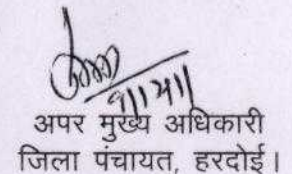 अपर मुख्य अधिकारी
जिला पंचायत, हरदोई।